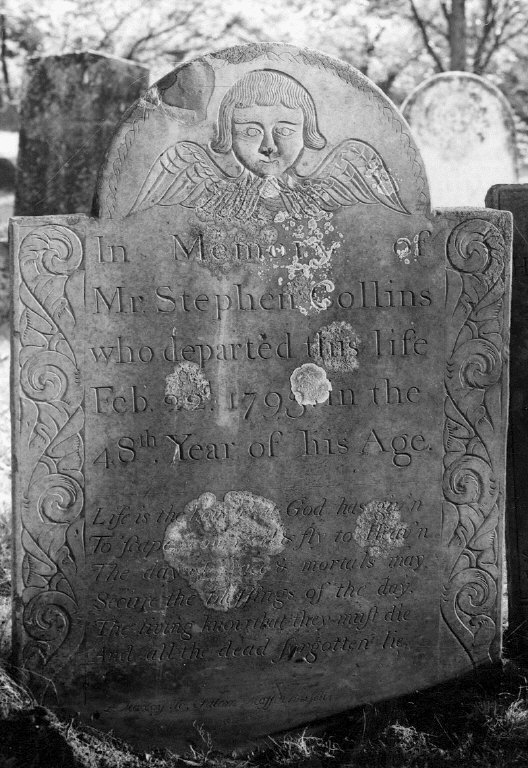 In Memory of
Mr. Stephen Collins
who departed this life
Feb. 22d. 1793. in the
48th. Year of his Age.
Life is the God has giv'n
To 'scape fly to Heav'n
The day mortals may
Secure the blessings of the day.
The living know that they must die
And all the dead forgotten lie.